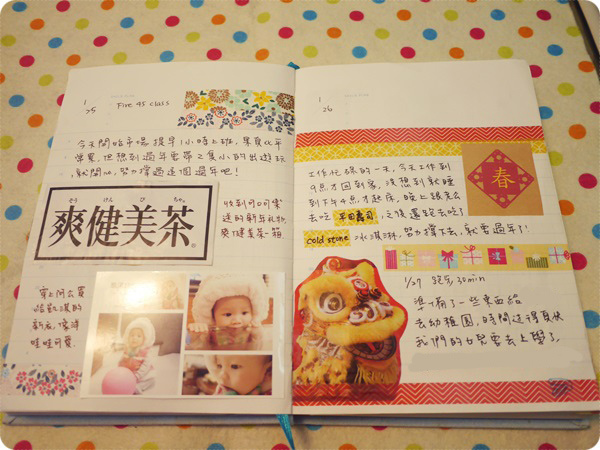 1/25
Five 45 class
今天開始市場提早1小時上班,果真比平
常累,但想到過年要帶之隻小的出遊玩
,就開心,努力撐過這個過年吧!
そう けん び ちゃ
爽健美茶
收到
送的新年礼物
爽健美茶一箱
穿上阿公買
給凱淇的
新衣,像洋
娃娃可愛.
1/26
春
工作忙碌的一天,今天工作到
9点才回到家,没想到就睡
到下午4点才起床,晚上跟老公
去吃平日壽司,之後還跑去吃!
cold stone 冰淇淋,努力撐下去,就要過年了!
1/27 跑步30min
準備了一些東西給
去幼稚園,時間過得真快
我們的女兒要去上學了.